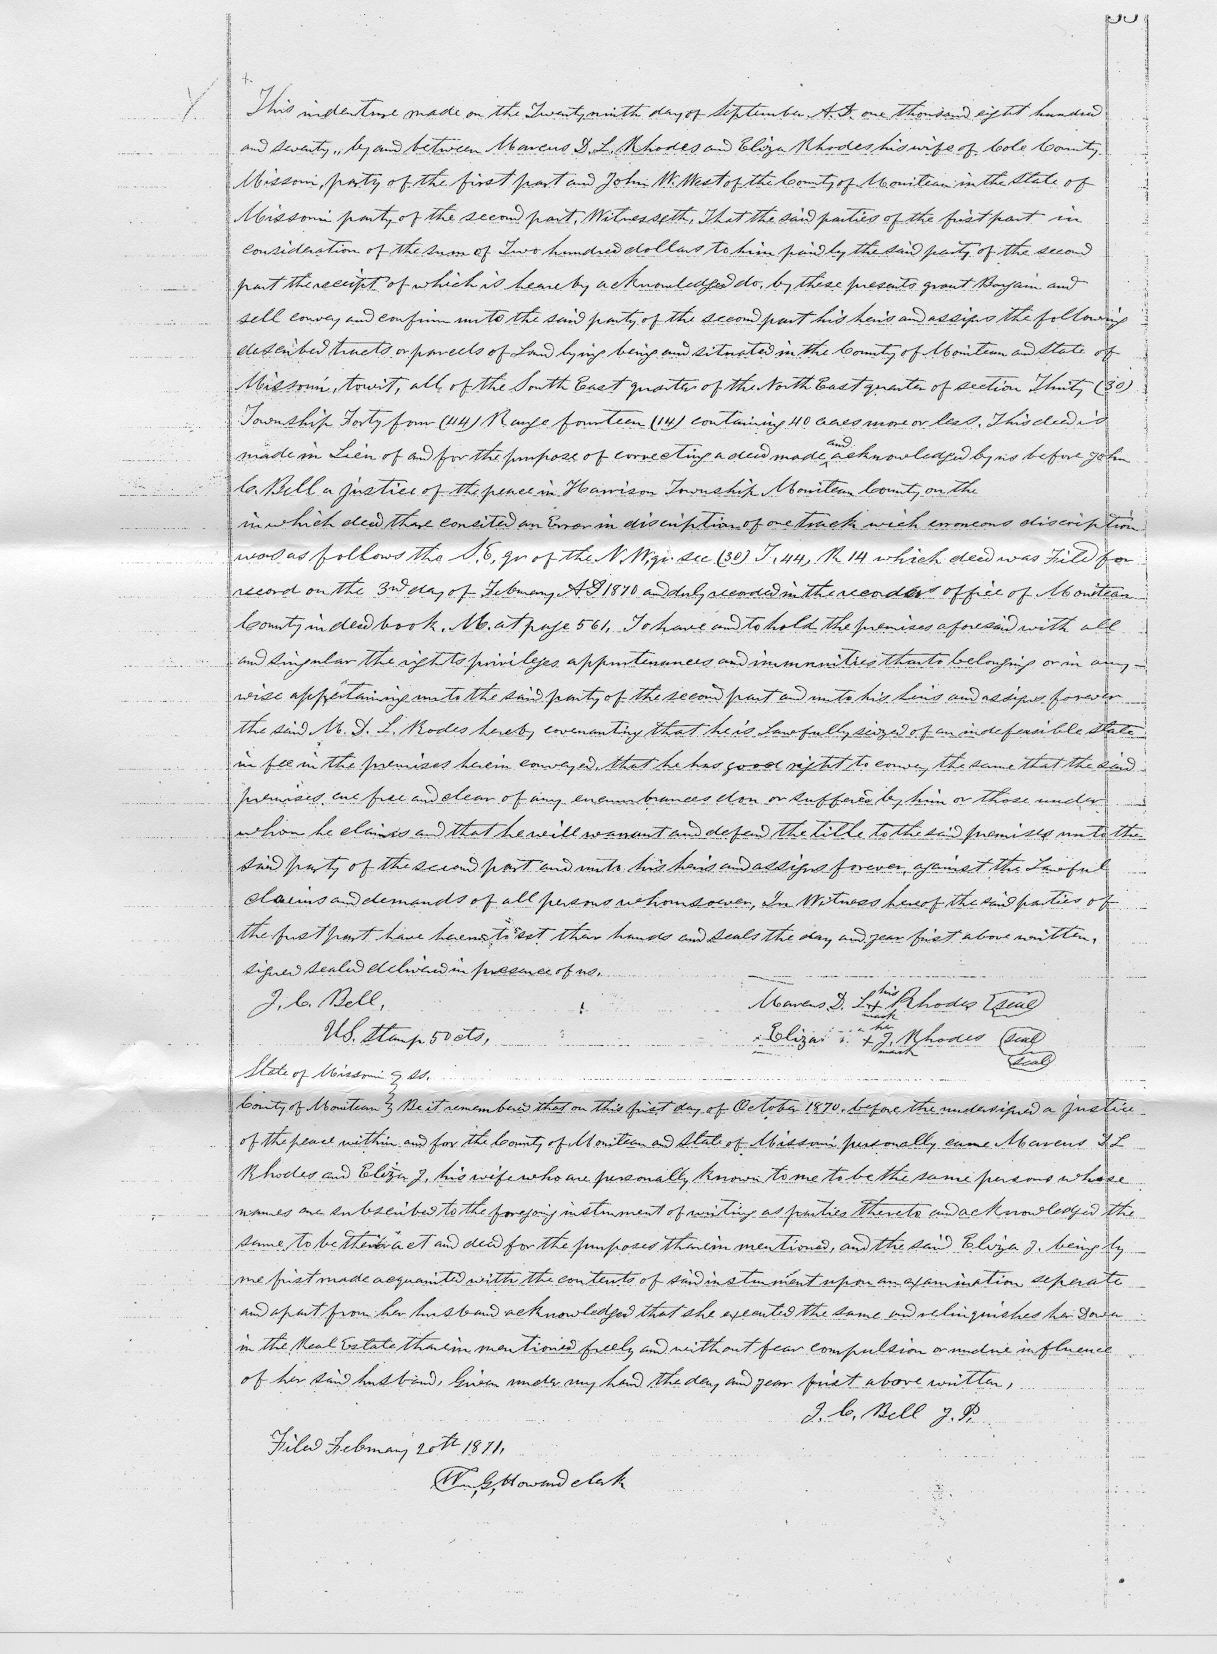 This indenture made on the Twenty ninth day of September A.D. one thousand eight hundred
and seventy, by and between Marcus D. L. Rhodes and Eliza Rhodes his wife of Cole County
Missouri, party of the first part and John W. West of the County of Moniteau in the State of
Missouri party of the second part, Witnesseth, That the said parties of the first part in
consideration of the sum of Two hundred dollars to him paid by the said party of the second
part the receipt of which is heareby acknowledged do, by these presents grant Bargain and
sell convey and confirm unto the said party of the second part his heirs and assigns the following
described tracts or parcels of Land lying being and situated in the County of Moniteau and State of
Missouri, towit, all of the South East quarter of the North East quarter of section Thirty (30)
Township Forty four (44) Range fourteen (14) containing 40 acres more or less. This deed is
made in Lieu of and for the purpose of correcting a deed made and acknowledged by us before John
C. Bell a justice of the peace in Harrison Township Moniteau County on the
in which deed there consited an Error in discription of one track wich erroneous discription
was as follows the S.E, qr of the N.W. qr sec (30) T. 44, R 14 which deed was Filed for
record on the 3rd day of February AD 1870 and duly recorded in the recorders office of Moniteau
County in deed book. M. at page 561, To have and to hold the premises aforesaid with all
and singular the rights privileges appurtenances and immunities thereto belonging or in any-
wise appertaining unto the said party of the second part and unto his heirs and assigns forever
the said M. D. L. Rodes hereby covenanting that he is Lawfully seized of an indefeasible State
in fee in the premises herein conveyed, that he has good right to convey the same that the said
premises are free and clear of any encumbrances don or suffered by him or those under
whom he claims and that he will warrant and defend the title to the said premises unto the
said party of the second part and unto his heirs and assigns forever, against the Lawful
claims and demands of all persons whomsoever, In Witness hereof the said parties of
the first part have hereunto set their hands and seals the day and year first above written,
signed sealed delivered in presence of us.
J. C. Bell, Marcus D. L. his + mark Rhodes (seal)
U.S. Stamp 50 cts, Eliza her + mark J. Rhodes (seal)
(seal)
State of Missouri } ss.
County of Moniteau } Be it remembered that on this first day of October 1870. before the undersigned a justice
of the peace within and for the County of Moniteau and State of Missouri personally came Marcus D L
Rhodes and Eliza J. his wife who are personally known to me to be the same persons whose
names are subscribed to the foregoing instrument of writing as parties thereto and acknowledged the
same to be their act and deed for the purposes therein mentioned, and the said Eliza J. being by
me first made acquainted with the contents of said instrument upon an examination seperate
and apart from her husband acknowledged that she executed the same and relinquishes her Dower
in the Real Estate therein mentioned freely and without fear compulsion or undue influence
of her said husband, Given under my hand the day and year first above written,
J. C. Bell J. P.
Filed February 20th 1871,
Wm. G. Howard clerk